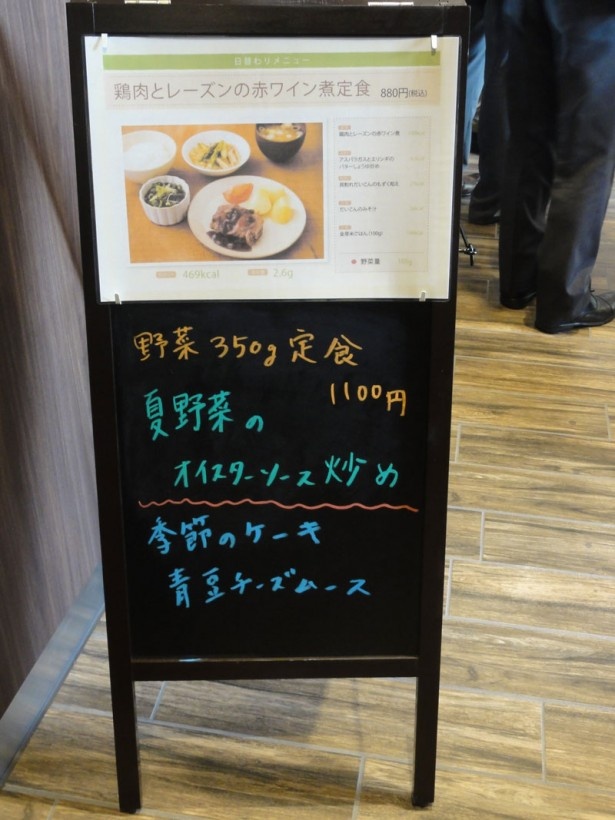 日替わりメニュー
鶏肉とレーズンの赤ワイン煮定食 880円(税込)
鶏肉とレーズンの赤ワイン煮
野菜量
469kcal
2.6g
野菜350g定食
1100円
夏野菜の
オイスターソース炒め
季節のケーキ
青豆チーズムース